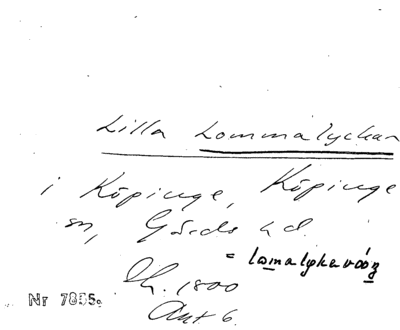 Lilla Lommalyckan
i Köpinge, Köpinge
sn, Gärds hd.
= lomalykavång
Lh. 1800
Akt 6.
Nr 7885.